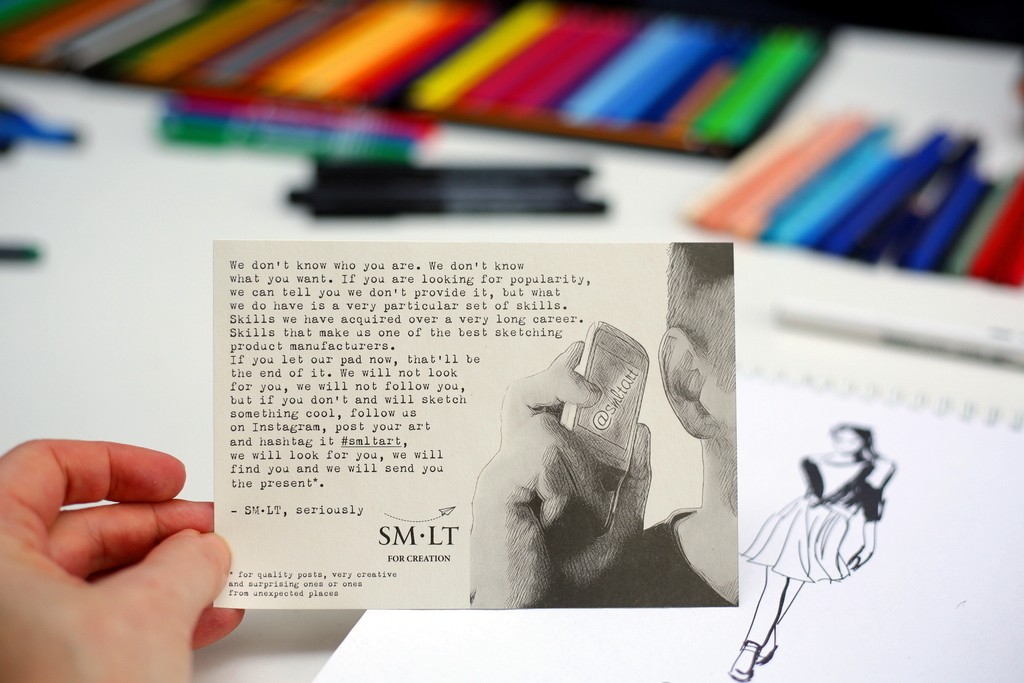 We don't know who you are. We don't know
what you want. If you are looking for popularity,
we can tell you we don't provide it, but what
we do have is a very particular set of skills.
Skills we have acquired over a very long career.
Skills that make us one of the best sketching
product manufacturers.
If you let our pad now, that'll be
the end of it. We will not look
for you, we will not follow you,
but if you don't and will sketch
something cool, follow us
on Instagram, post your art
and hashtag it #smltart,
we will look for you, we will
find you and we will send you
the present*.
– SM·LT, seriously
SM·LT
FOR CREATION
* for quality posts, very creative
and surprising ones or ones
from unexpected places
@smltart